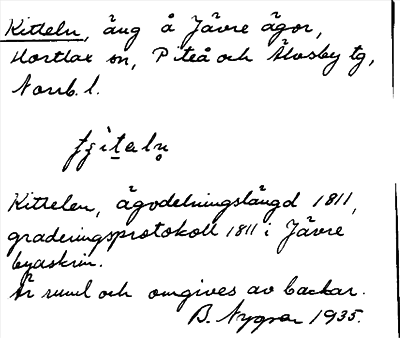 Kitteln, äng å Jävre ägor,
Hortlax sn, Piteå och Älvsby tg,
Norrb. l.
Kittelen, ägodelningslängd 1811,
graderingsprotokoll 1811 i Jävre
byaskrin.
Är rund och omgives av backar.
B. Nygren 1935.